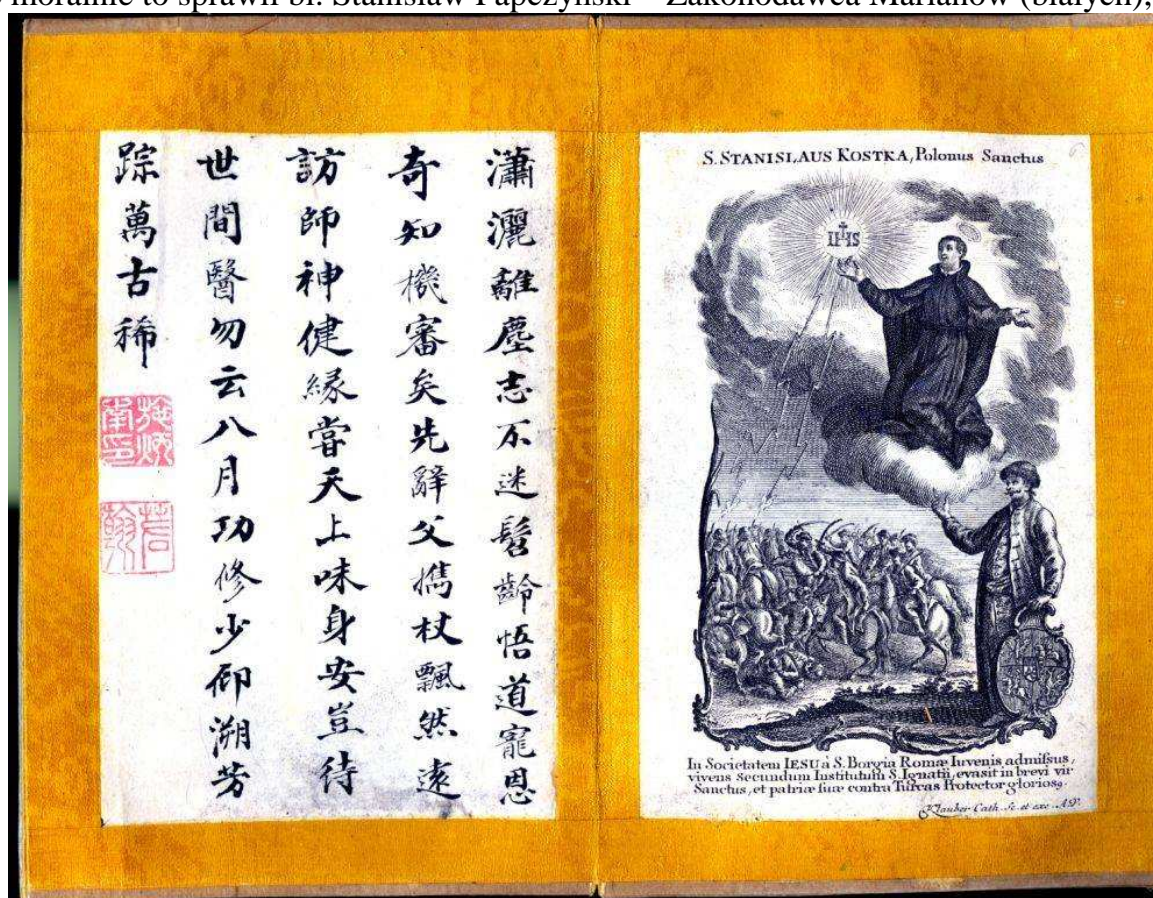 moralnie to sprawił bł. Stanisław Papczyński – Zakonodawca Marianów (białych),
瀟灑離塵志不迷髫齡悟道寵恩
奇知機審矣先辭父擕杖飄然遠
訪師神健緣嘗天上味身安豈待
世間醫勿云八月功修少仰溯芳
踪萬古稀
S. STANISLAUS KOSTKA, Polonus Sanctus
IHS
In Societatem IESU à S. Borgia Romæ Iuvenis admiſsus,
vivens Secundum Institutum S. Ignatii, evasit in brevi vir
Sanctus, et patriæ ſuæ contra Turcas Protector glorios9.
Klauber Cath. Sc. et exc. A.V.